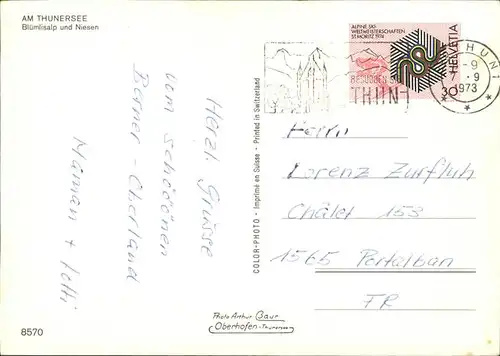 AM THUNERSEE
Blümlisalp und Niesen
Herzl. Grüsse
vom schöönen
Berner-Oberland
Maman +
8570
COLOR-PHOTO - Imprimé en Suisse - Printed in Switzerland
Photo Arthur Baur
Oberhofen-Thunersee
ALPINE SKI
WELTMEISTERSCHAFTEN
ST. MORITZ 1974
HELVETIA
30
THUN
THUN 1
-9
1973
Herrn
Lorenz Zurfluh
Châlet 153
1565 Portalban
FR